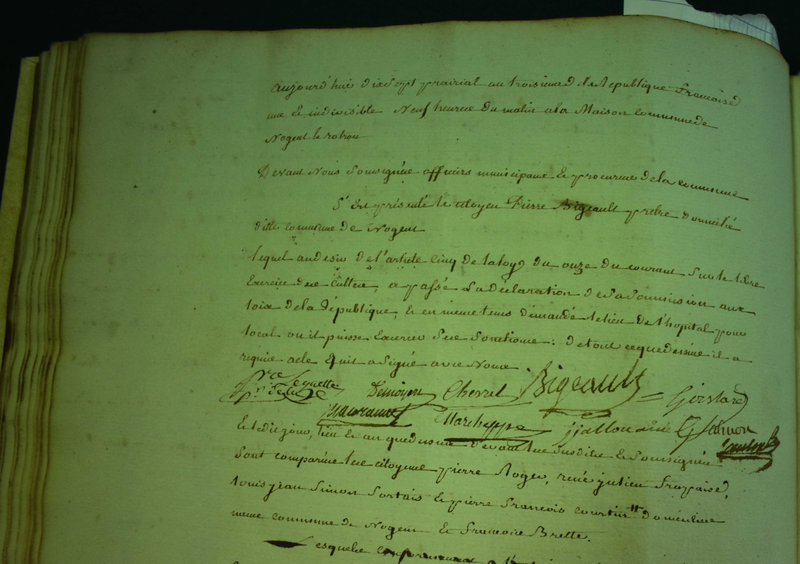 aujourd'huy dixsept prairial an troisieme de la Republique francaise
une et indivisible Neuf heures du matin a la Maison commune de
Nogent le rotrou
Devant Nous Soussignés officiers municipaux et procureur de la commune
S'est présenté le citoyen Pierre Bigeault prêtre domicilié
dite commune de Nogent
lequel au desir de l'article cinq de la loy du onze du courant Sur le libre
Exercice des Cultes, a passé Sa déclaration de Sa Soumission aux
loix de la République, et en meme tems demandé le lieu de l'hopital pour
local ou il puisse Exercer Ses fonctions : de tout ce que dessus il a
requis acte et a Signé avec Nous
Bigeault
Chevret
et ledit jour, lieu et an que dessus devant les Susdits et Soussignés
Sont comparus les citoyens pierre Roger, rené julien
louis jean Simon Sortais et pierre francois courtin domiciliés
meme commune de Nogent et francois Brette.
Lesquels